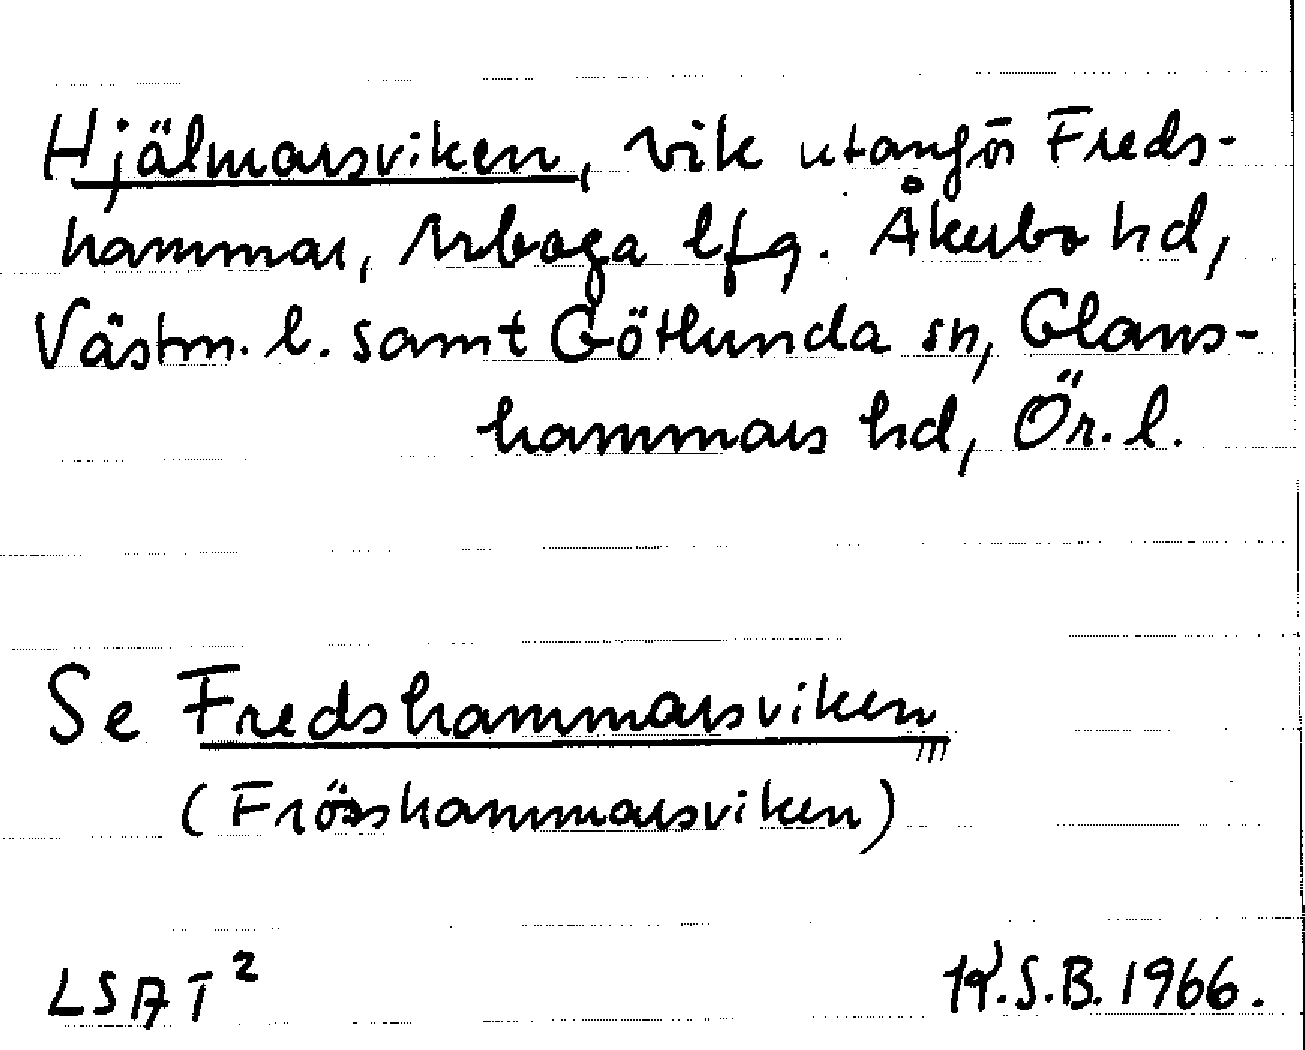 Hjälmarsviken, vik utanför Freds-
hammar, Arboga lfg. Åkerbo hd,
Västm. l. samt Götlunda sn, Glans-
hammars hd, Ör. l.
Se Fredshammarsviken
(Frösshammarsviken)
LSA T²
K.S.B. 1966.